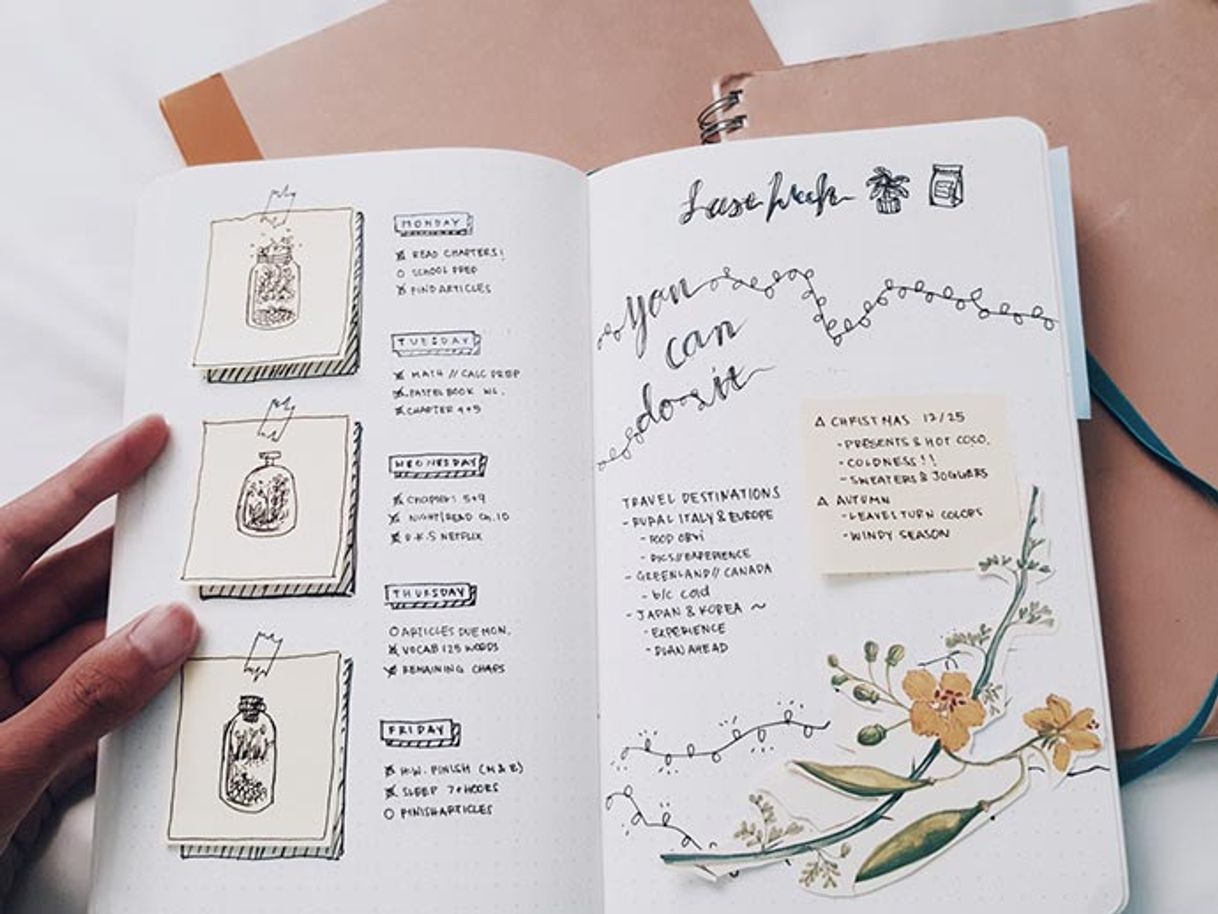 MONDAY
READ CHAPTERS!
SCHOOL PREP
FIND ARTICLES
TUESDAY
MATH // CALC PREP
PASTEL BOOK
CHAPTER 4+5
WEDNESDAY
CHAPTER: 5+9
NIGHT/READ CH.10
NETFLIX
THURSDAY
ARTICLES DUE MON.
VOCAB 125 WORDS
REMAINING CHAPS
FRIDAY
H.W. FINISH (M & E)
SLEEP 7+HOURS
FINISH ARTICLES
Last Week
you
can
do it
Δ CHRISTMAS 12/25
- PRESENTS & HOT COCO.
- COLDNESS!!
- SWEATERS & JOGGERS
Δ AUTUMN
- LEAVES TURN COLORS
- WINDY SEASON
TRAVEL DESTINATIONS
- RURAL ITALY & EUROPE
- FOOD OBVI
- PICS//EXPERIENCE
- GREENLAND// CANADA
- b/c cold
- JAPAN & KOREA ~
- EXPERIENCE
- PLAN AHEAD